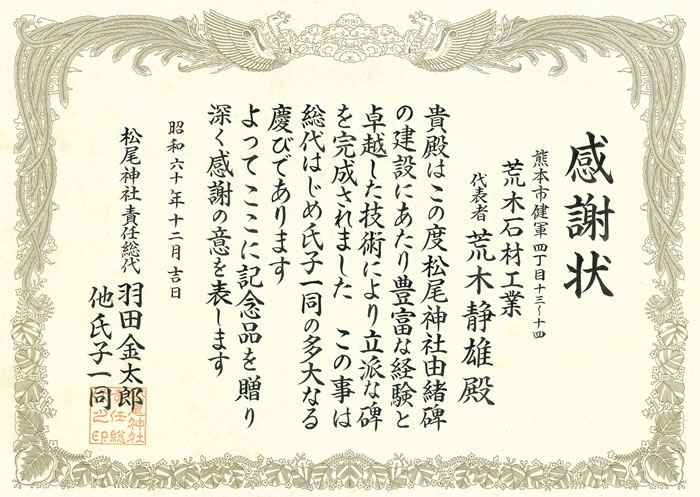 感謝状
熊本市健軍四丁目十三～十四
荒木石材工業
代表者 荒木静雄殿
貴殿はこの度松尾神社由緒碑
の建設にあたり豊富な経験と
卓越した技術により立派な碑
を完成されました この事は
総代はじめ氏子一同の多大なる
慶びであります
よってここに記念品を贈り
深く感謝の意を表します
昭和六十年十二月吉日
松尾神社責任総代 羽田金太郎
他氏子一同
松尾神社
責任総
代之印